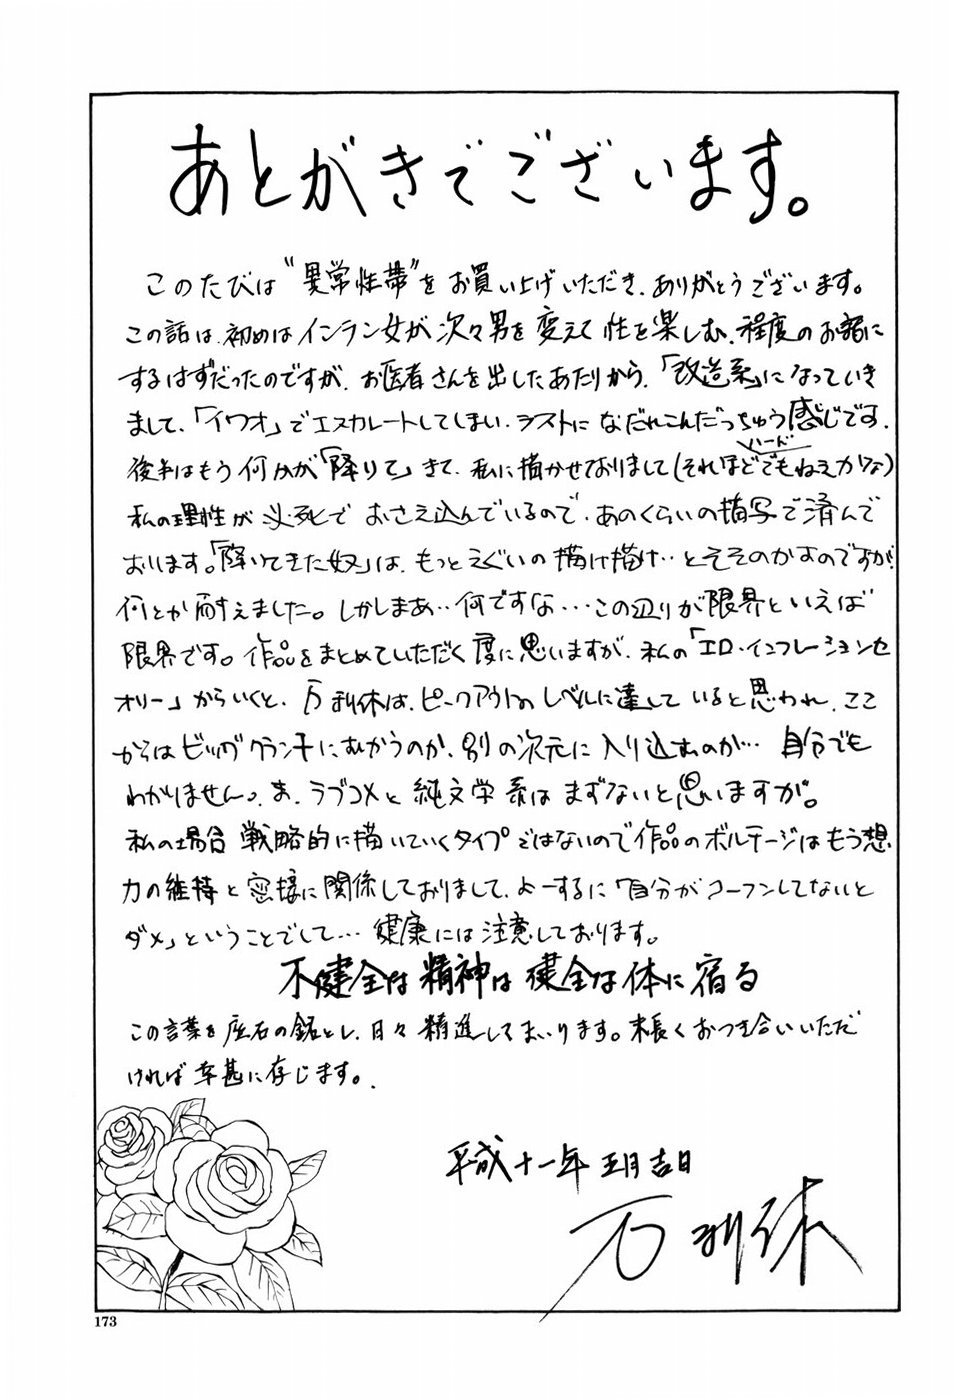 あとがきでございます。
このたびは"異常性帯"をお買い上げいただき、ありがとうございます。
この話は、初めはインラン女が次々男を変えて性を楽しむ、程度のお話に
するはずだったのですが、お医者さんを出したあたりから、「改造系」になっていき
まして、「イワオ」でエスカレートしてしまい、ラストになだれこんだっちゅう感じです。
後半はもう何かが「降りて」きて、私に描かせておりまして(それほどハードでもねえかな)
私の理性が必死でおさえ込んでいるので、あのくらいの描写で済んで
おります。「降りてきた奴」は、もっとえぐいの描け描け‥とそそのかすのですが、
何とか耐えました。しかしまあ‥何ですな…この辺りが限界といえば
限界です。作品をまとめていただく度に思いますが、私の「エロ・インフレーションセ
オリー」からいくと、万利休は、ピークアウトのレベルに達していると思われ、ここ
からはビッグクランチにむかうのか、別の次元に入り込むのか… 自分でも
わかりません。ま、ラブコメと純文学系はまずないと思いますが。
私の場合戦略的に描いていくタイプではないので作品のボルテージはもう想
力の維持と密接に関係しておりまして、よーするに「自分がコーフンしてないと
ダメ」ということでして… 健康には注意しております。
不健全な精神は健全な体に宿る
この言葉を座右の銘とし、日々精進してまいります。末長くおつき合いいただ
ければ幸甚に存じます。
平成十一年五月吉日
万利休
173